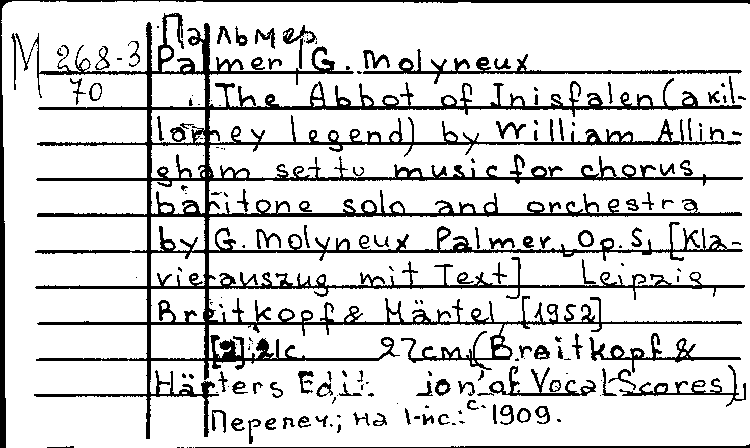 Пальмер
M 268-3 Palmer, G. Molyneux
70 The Abbot of Inisfalen (a kil-
lorney legend) by William Allin-
gham set to music for chorus,
baritone solo and orchestra
by G. Molyneux Palmer, Op. 5, [Kla-
vierauszug mit Text] Leipzig,
Breitkopf & Härtel, [1952]
[2], 21 c. 27cm, (Breitkopf &
Härters Edit ion of Vocal Scores),
Перепеч.; на 1-й с.: c. 1909.